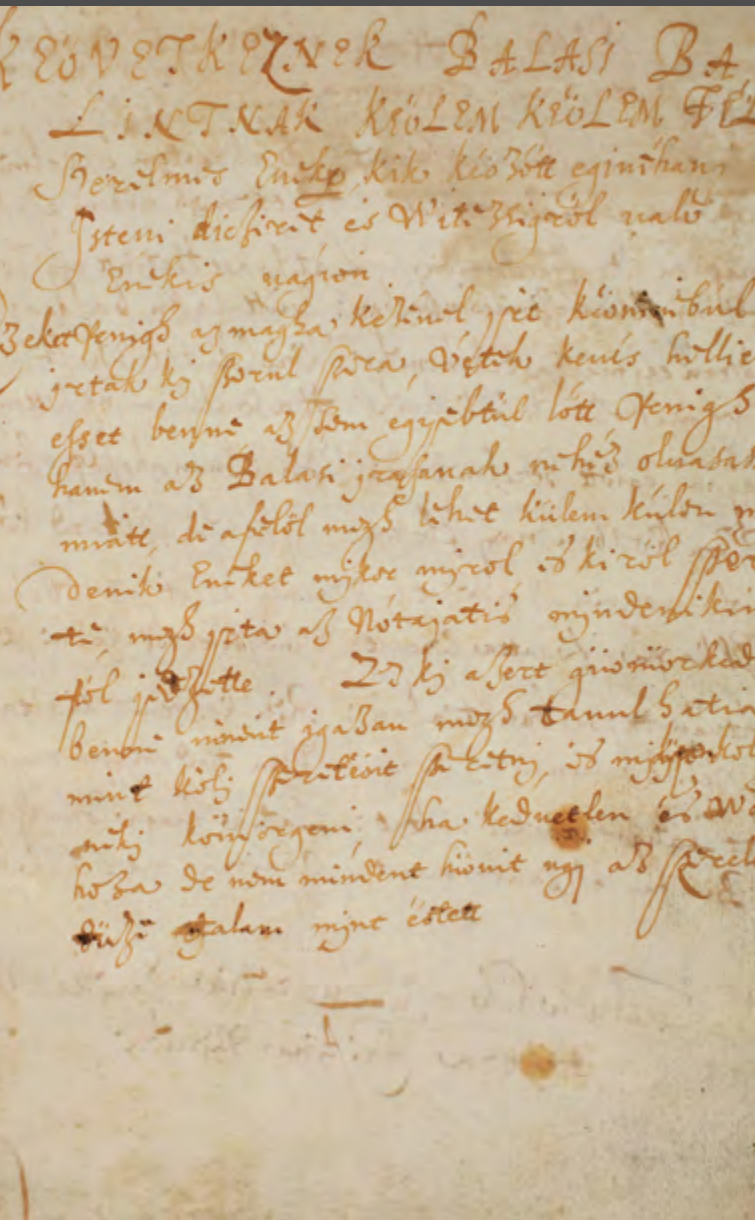 KEÖVETKEZNEK BALASI BA
LINTNAK KEÖLEM KEÖLEM FEL
Szerelmes Eneki, kik keözött eginehani
Isteni dicsiret es Witezsigröl ualo
Enekis uagion
zeket penigh az magha kezeuel irt keoniuebül
irtak ki szorul szora, Vetek keués hellie
esset benne, az sem egyebtül lött penigh
hanem az Balasi irasanak nehéz oluasasa
miatt, de afelöl megh tehet külem külön m
denik Eneket mikor miröl, es kiröl szer
te, megh irta az Nótajatis mindenikn
föl jedzette. Ez ki azert giioniörked
benne mindent igazan megh tanulhatia
mint köll szeretöit szeretni, es
neki köniörgeni, ha keduetlen es w
hoza de nem mindent hiouit ugi az szerel
tüze talam mint östett